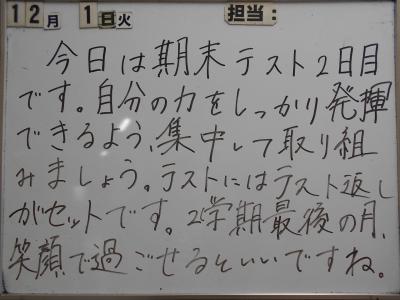 12月 1日火 担当:
今日は期末テスト2日目
です。自分の力をしっかり発揮
できるよう、集中して取り組
みましょう。テストにはテスト返し
がセットです。2学期最後の月、
笑顔で過ごせるといいですね。